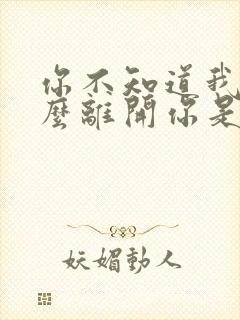 你不知道我
麼離開你是
妖媚動人